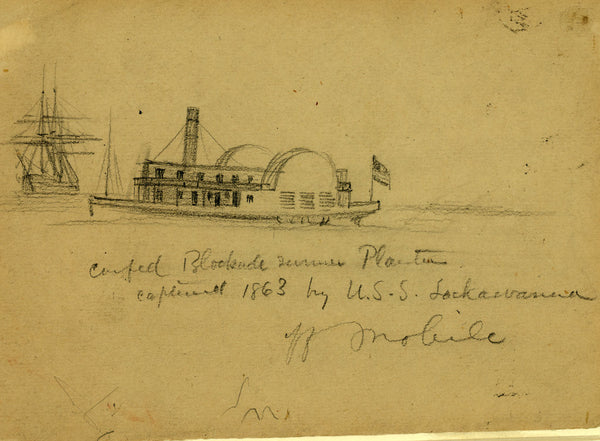 confed Blockade runner Planter
captured 1863 by U.S.S. Lackawanna
off Mobile